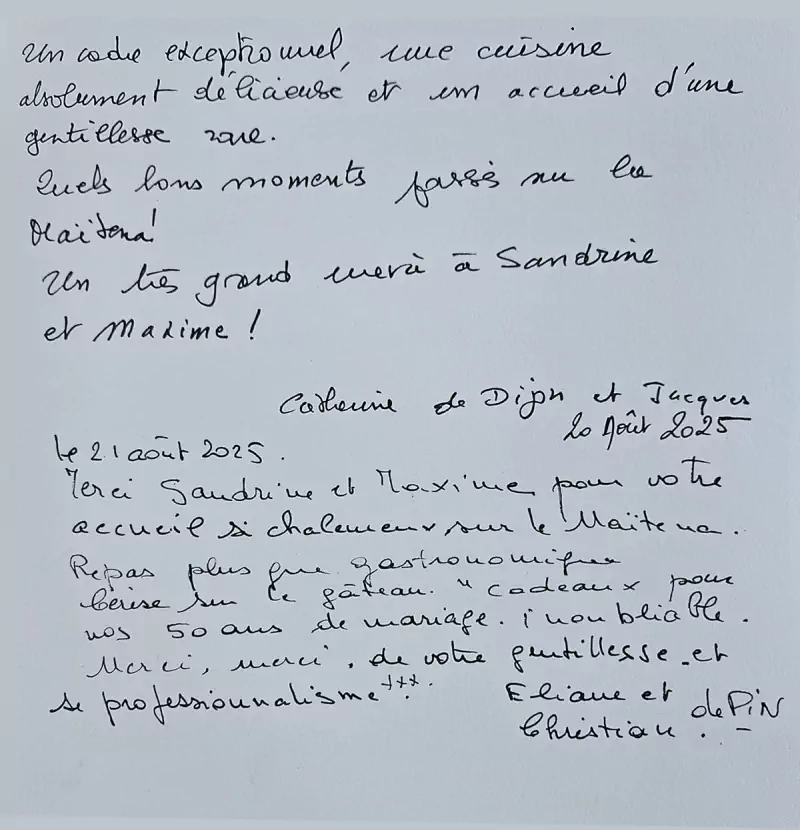 Un cadre exceptionnel, une cuisine
absolument délicieuse et un accueil d'une
gentillesse rare.
Quels bons moments passés sur le
Maïtena!
Un très grand merci à Sandrine
et Maxime !
Catherine de Dijon et Jacques
20 Août 2025
le 21 août 2025.
Merci Sandrine et Maxime pour votre
accueil si chaleureux sur le Maïtena.
Repas plus que gastronomique
Cerise sur le gâteau. " cadeaux pour
nos 50 ans de mariage. inoubliable.
Merci, merci, de votre gentillesse et
se professionnalisme +++.
Eliane et
Christian. de PiN